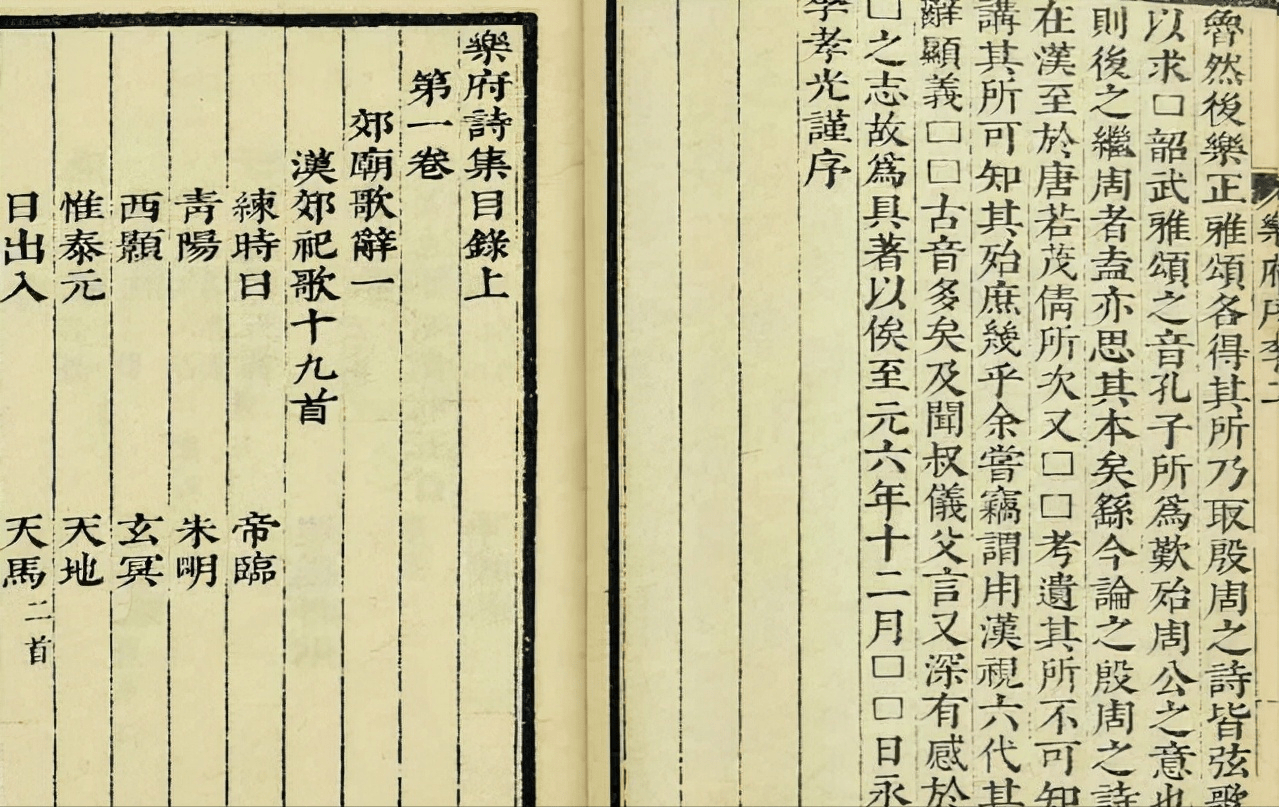 樂府序李二
魯然後樂正雅頌各得其所乃取殷周之詩皆弦歌
以求□韶武雅頌之音孔子所爲歎殆周公之意也
則後之繼周者盍亦思其本矣繇今論之殷周之詩
在漢至於唐若茂倩所次又□□考遺其所不可知
講其所可知其殆庶幾乎余嘗竊謂用漢視六代其
辭顯義□□古音多矣及聞叔儀父言又深有感於
□之志故爲具著以俟至元六年十二月□□日永
孝光謹序
樂府詩集目錄上
第一卷
郊廟歌辭一
漢郊祀歌十九首
練時日 帝臨
青陽 朱明
西顥 玄冥
惟泰元 天地
日出入 天馬二首